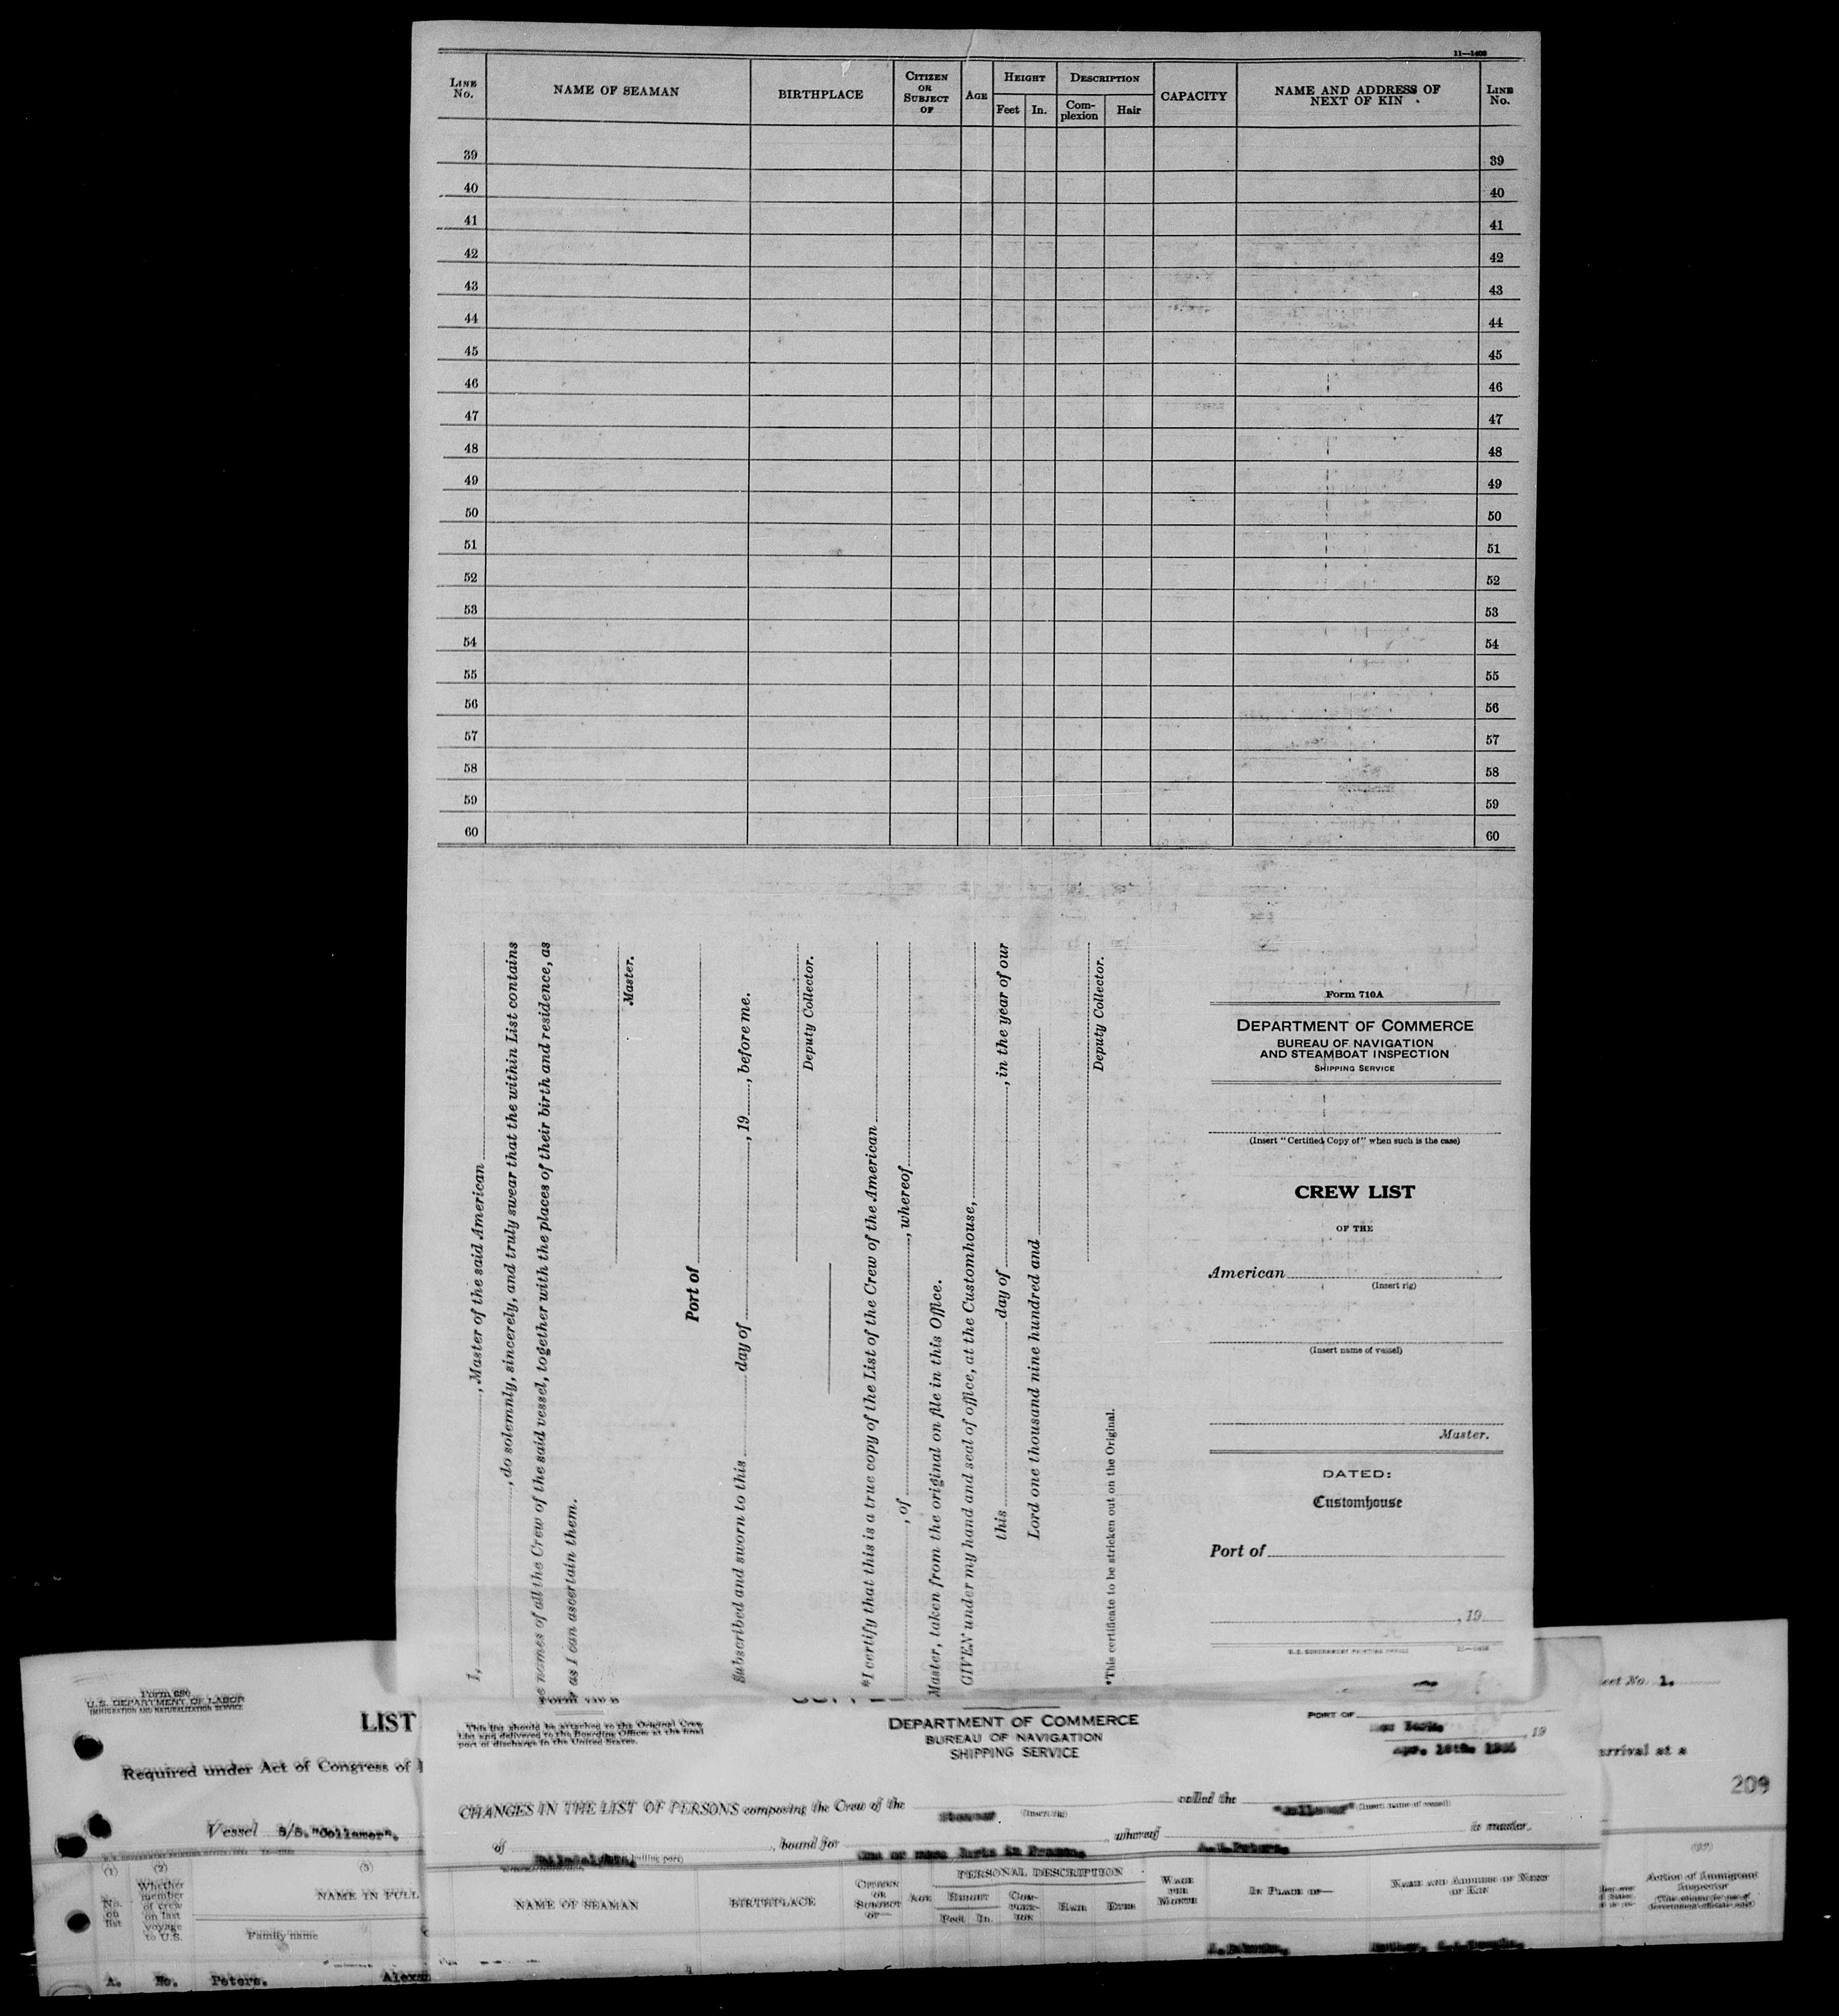 11—1408
LINE No. NAME OF SEAMAN BIRTHPLACE CITIZEN OR SUBJECT OF AGE HEIGHT Feet In. DESCRIPTION Com-plexion Hair CAPACITY NAME AND ADDRESS OF NEXT OF KIN LINE No.
39 39
40 40
41 41
42 42
43 43
44 44
45 45
46 46
47 47
48 48
49 49
50 50
51 51
52 52
53 53
54 54
55 55
56 56
57 57
58 58
59 59
60 60
I, , Master of the said American
, do solemnly, sincerely, and truly swear that the within List contains
names of all the Crew of the said vessel, together with the places of their birth and residence, as
as I can ascertain them.
Master.
Port of
Subscribed and sworn to this day of , 19 , before me.
Deputy Collector.
*I certify that this is a true copy of the List of the Crew of the American
, of , whereof
Master, taken from the original on file in this Office.
GIVEN under my hand and seal of office, at the Customhouse,
this day of , in the year of our
Lord one thousand nine hundred and
Deputy Collector.
*This certificate to be stricken out on the Original.
Form 710A
DEPARTMENT OF COMMERCE
BUREAU OF NAVIGATION
AND STEAMBOAT INSPECTION
SHIPPING SERVICE
(Insert "Certified Copy of" when such is the case)
CREW LIST
OF THE
American
(Insert rig)
(Insert name of vessel)
Master.
DATED:
Customhouse
Port of
, 19
U.S. GOVERNMENT PRINTING OFFICE 11—1408
Form 680
U.S. DEPARTMENT OF LABOR
IMMIGRATION AND NATURALIZATION SERVICE
LIST
Required under Act of Congress of
Vessel S/S. "Collamer".
(1) (2) (3)
No. on list
Whether member of crew on last voyage to U.S.
NAME IN FULL
Family name
A. No. Peters.
This list should be attached to the Original Crew
List and delivered to the Boarding Officer at the final
port of discharge in the United States.
DEPARTMENT OF COMMERCE
BUREAU OF NAVIGATION
SHIPPING SERVICE
PORT OF
New York. , 19
CHANGES IN THE LIST OF PERSONS composing the Crew of the Steamer (Insert rig) called the "Collamer" (Insert name of vessel)
of , bound for One or more Ports in France. , whereof A.H.Peters. is master.
NAME OF SEAMAN BIRTHPLACE CITIZEN OR SUBJECT OF— AGE PERSONAL DESCRIPTION HEIGHT Feet In. COM-PLEX-ION HAIR EYES WAGE PER MONTH IN PLACE OF— NAME AND ADDRESS OF NEXT OF KIN
No. 1.
arrival at a
209
Action of Immigrant Inspector